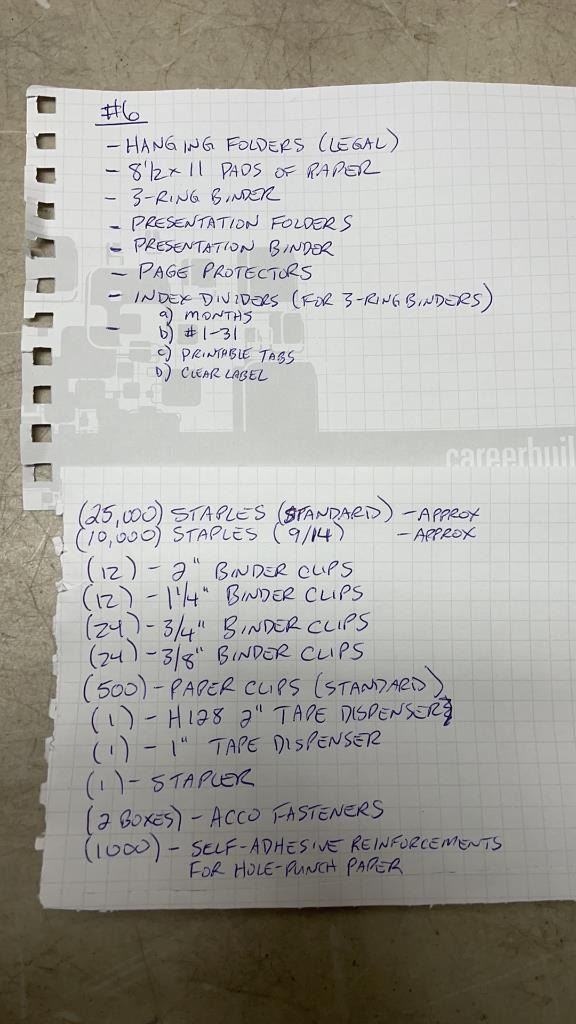 #6
- HANGING FOLDERS (LEGAL)
- 8 1/2 x 11 PADS OF PAPER
- 3-RING BINDER
- PRESENTATION FOLDERS
- PRESENTATION BINDER
- PAGE PROTECTORS
- INDEX DIVIDERS (FOR 3-RING BINDERS)
a) MONTHS
- b) #1-31
c) PRINTABLE TABS
D) CLEAR LABEL
careerbuil
(25,000) STAPLES (STANDARD) - APPROX
(10,000) STAPLES (9/14) - APPROX
(12) - 2" BINDER CLIPS
(12) - 1 1/4" BINDER CLIPS
(24) - 3/4" BINDER CLIPS
(24) - 3/8" BINDER CLIPS
(500) - PAPER CLIPS (STANDARD)
(1) - H128 2" TAPE DISPENSER
(1) - 1" TAPE DISPENSER
(1) - STAPLER
(2 BOXES) - ACCO FASTENERS
(1000) - SELF-ADHESIVE REINFORCEMENTS
FOR HOLE-PUNCH PAPER